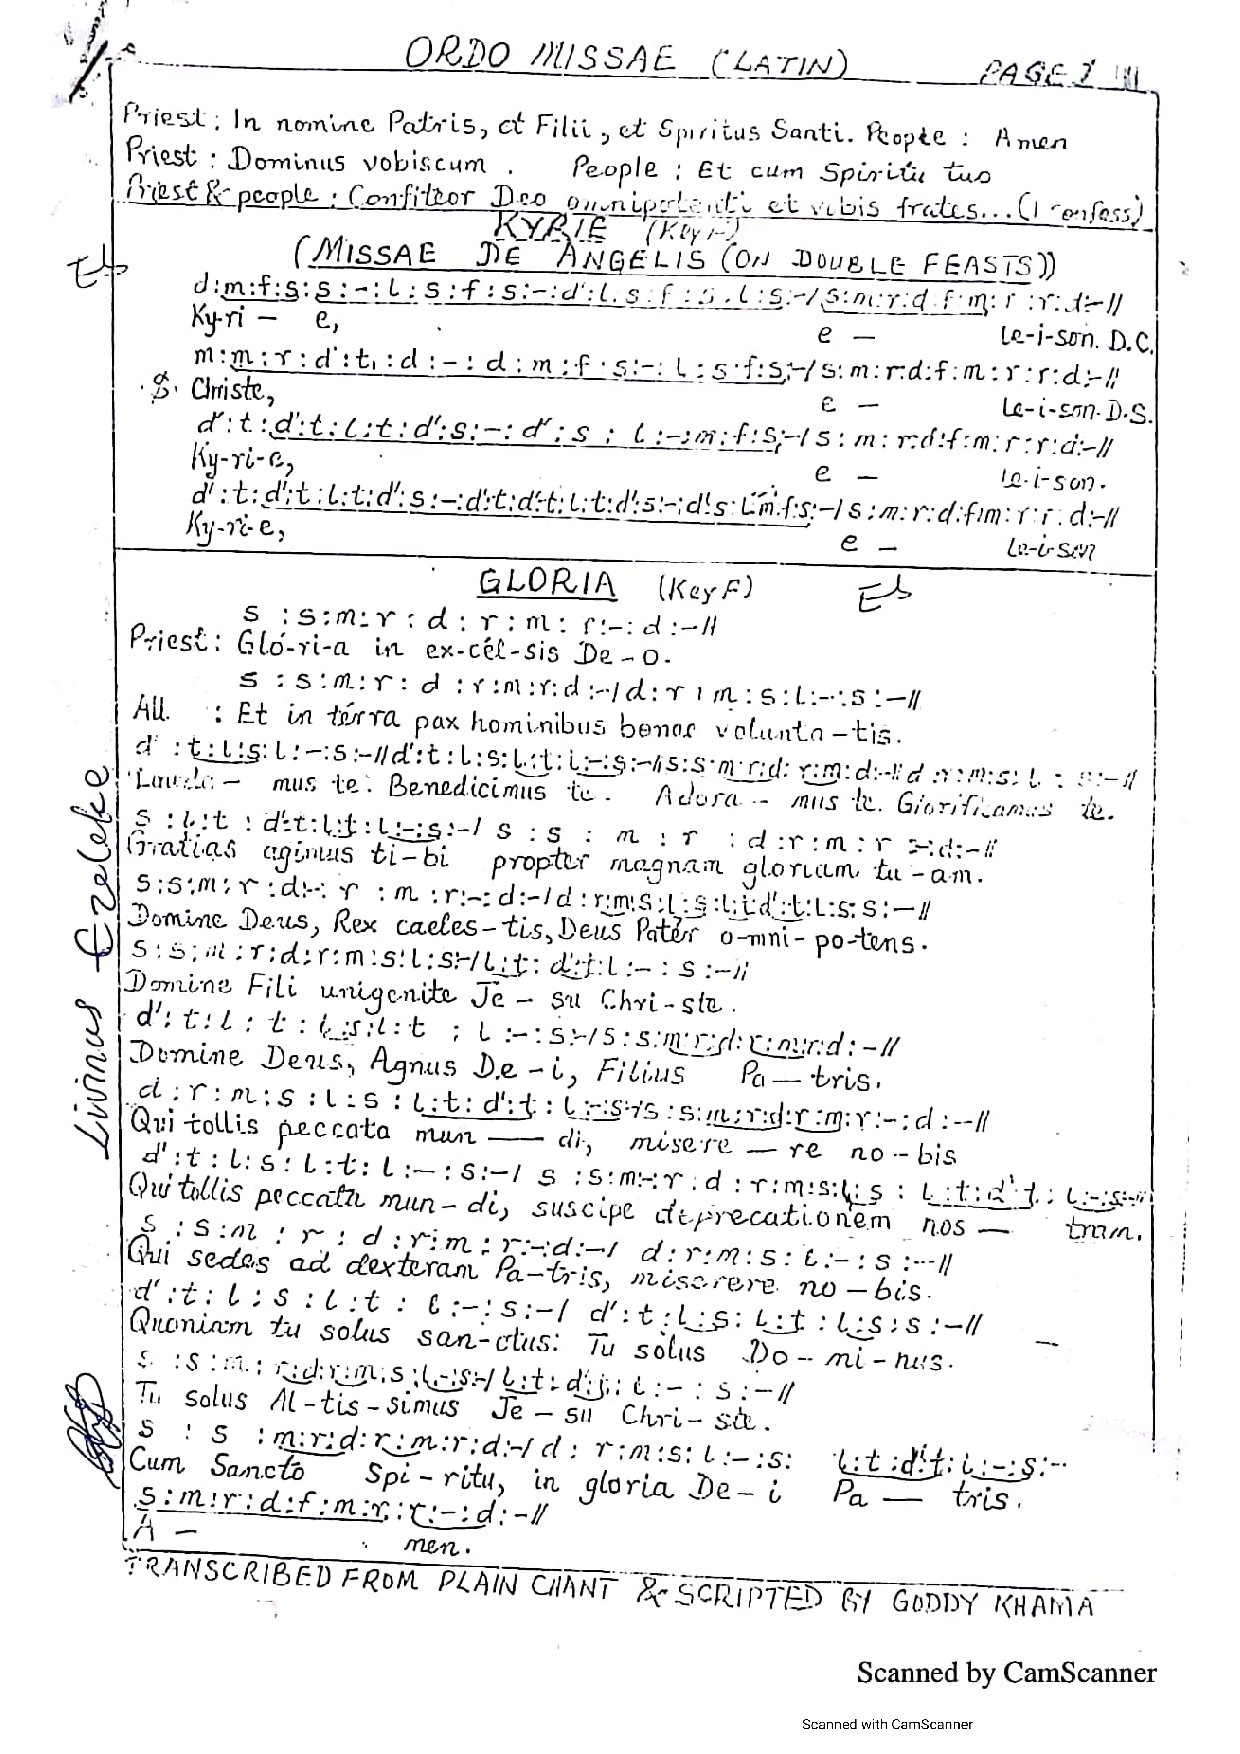 ORDO MISSAE (LATIN) PAGE 1
Priest: In nomine Patris, et Filii, et Spiritus Santi. People : Amen
Priest : Dominus vobiscum . People : Et cum Spiritu tuo
Priest & people : Confiteor Deo omnipotenti et vobis frates...(I confess)
KYRIE (Key F)
(MISSAE DE ANGELIS (ON DOUBLE FEASTS))
Eb
d:m:f:s:s:-:l:s:f:s:-:d':l.s:f:s.l:s:-/s:m:r:d.f:m:r:r:d:-//
Ky-ri - e, e - le-i-son. D.C.
m:m:r:d':t,:d:-:d:m:f:s:-:l:s:f:s:-/s:m:r:d:f:m:r:r:d:-//
S. Christe, e - le-i-son. D.S.
d':t:d':t:l:t:d':s:-:d':s:l:-:m:f:s:-/s:m:r:d:f:m:r:r:d:-//
Ky-ri-e, e - le-i-son.
d':t:d':t:l:t:d':s:-:d':t:d':t:l:t:d':s:-:d':s:l:m:f:s:-/s:m:r:d:f:m:r:r:d:-//
Ky-ri-e, e - le-i-son
GLORIA (Key F) Eb
s :s:m:r:d:r:m:r:-:d:-//
Priest: Gló-ri-a in ex-cél-sis De-o.
s:s:m:r:d:r:m:r:d:-/d:r:m:s:l:-:s:-//
All : Et in térra pax hominibus bonae volunta-tis.
d':t:l:s:l:-:s:-//d':t:l:s:l:t:l:-:s:-//s:s:m:r:d:r:m:d:-//d:r:m:s:l:s:-//
Lauda- mus te. Benedicimus te. Adora- mus te. Glorificamus te.
s:l:t:d':t:l:t:l:-:s:-/s:s:m:r:d:r:m:r:-:d:-//
Gratias agimus ti-bi propter magnam gloriam tu-am.
s:s:m:r:d:-:r:m:r:-:d:-/d:r:m:s:l:s:l:t:d':t:l:s:s:-//
Domine Deus, Rex caeles-tis, Deus Pater o-mni-po-tens.
s:s:m:r:d:r:m:s:l:s:-/l:t:d':t:l:-:s:-//
Domine Fili unigenite Je- su Chri-ste.
d':t:l:t:l:s:l:t:l:-:s:-/s:s:m:r:d:r:m:r:d:-//
Domine Deus, Agnus De-i, Filius Pa-tris.
d:r:m:s:l:s:l:t:d':t:l:-:s:-/s:s:m:r:d:r:m:r:-:d:--//
Qui tollis peccata mun — di, misere - re no-bis
d':t:l:s:l:t:l:-:s:-/s:s:m:-:r:d:r:m:s:l:s:l:t:d':t:l:-:s:-//
Qui tollis peccata mun-di, suscipe deprecationem nos — tram.
s:s:m:r:d:r:m:r:-:d:-/d:r:m:s:l:-:s:--//
Qui sedes ad dexteram Pa-tris, miserere no-bis.
d':t:l:s:l:t:l:-:s:-/d':t:l:s:l:t:l:s:s:-//
Quoniam tu solus san-ctus: Tu solus Do-mi-nus.
s:s:m:r:d:r:m:s:l:-:s:-/l:t:d':t:l:-:s:-//
Tu solus Al-tis-simus Je-su Chri-ste.
s:s:m:r:d:r:m:r:d:-/d:r:m:s:l:-:s: l:t:d':t:l:-:s:-
Cum Sancto Spi-ritu, in gloria De-i Pa — tris.
s:m:r:d:f:m:r:r:-:d:-//
A - men.
TRANSCRIBED FROM PLAIN CHANT & SCRIPTED BY GODDY KHAMA
Livinus Ezeleke
Scanned by CamScanner
Scanned with CamScanner